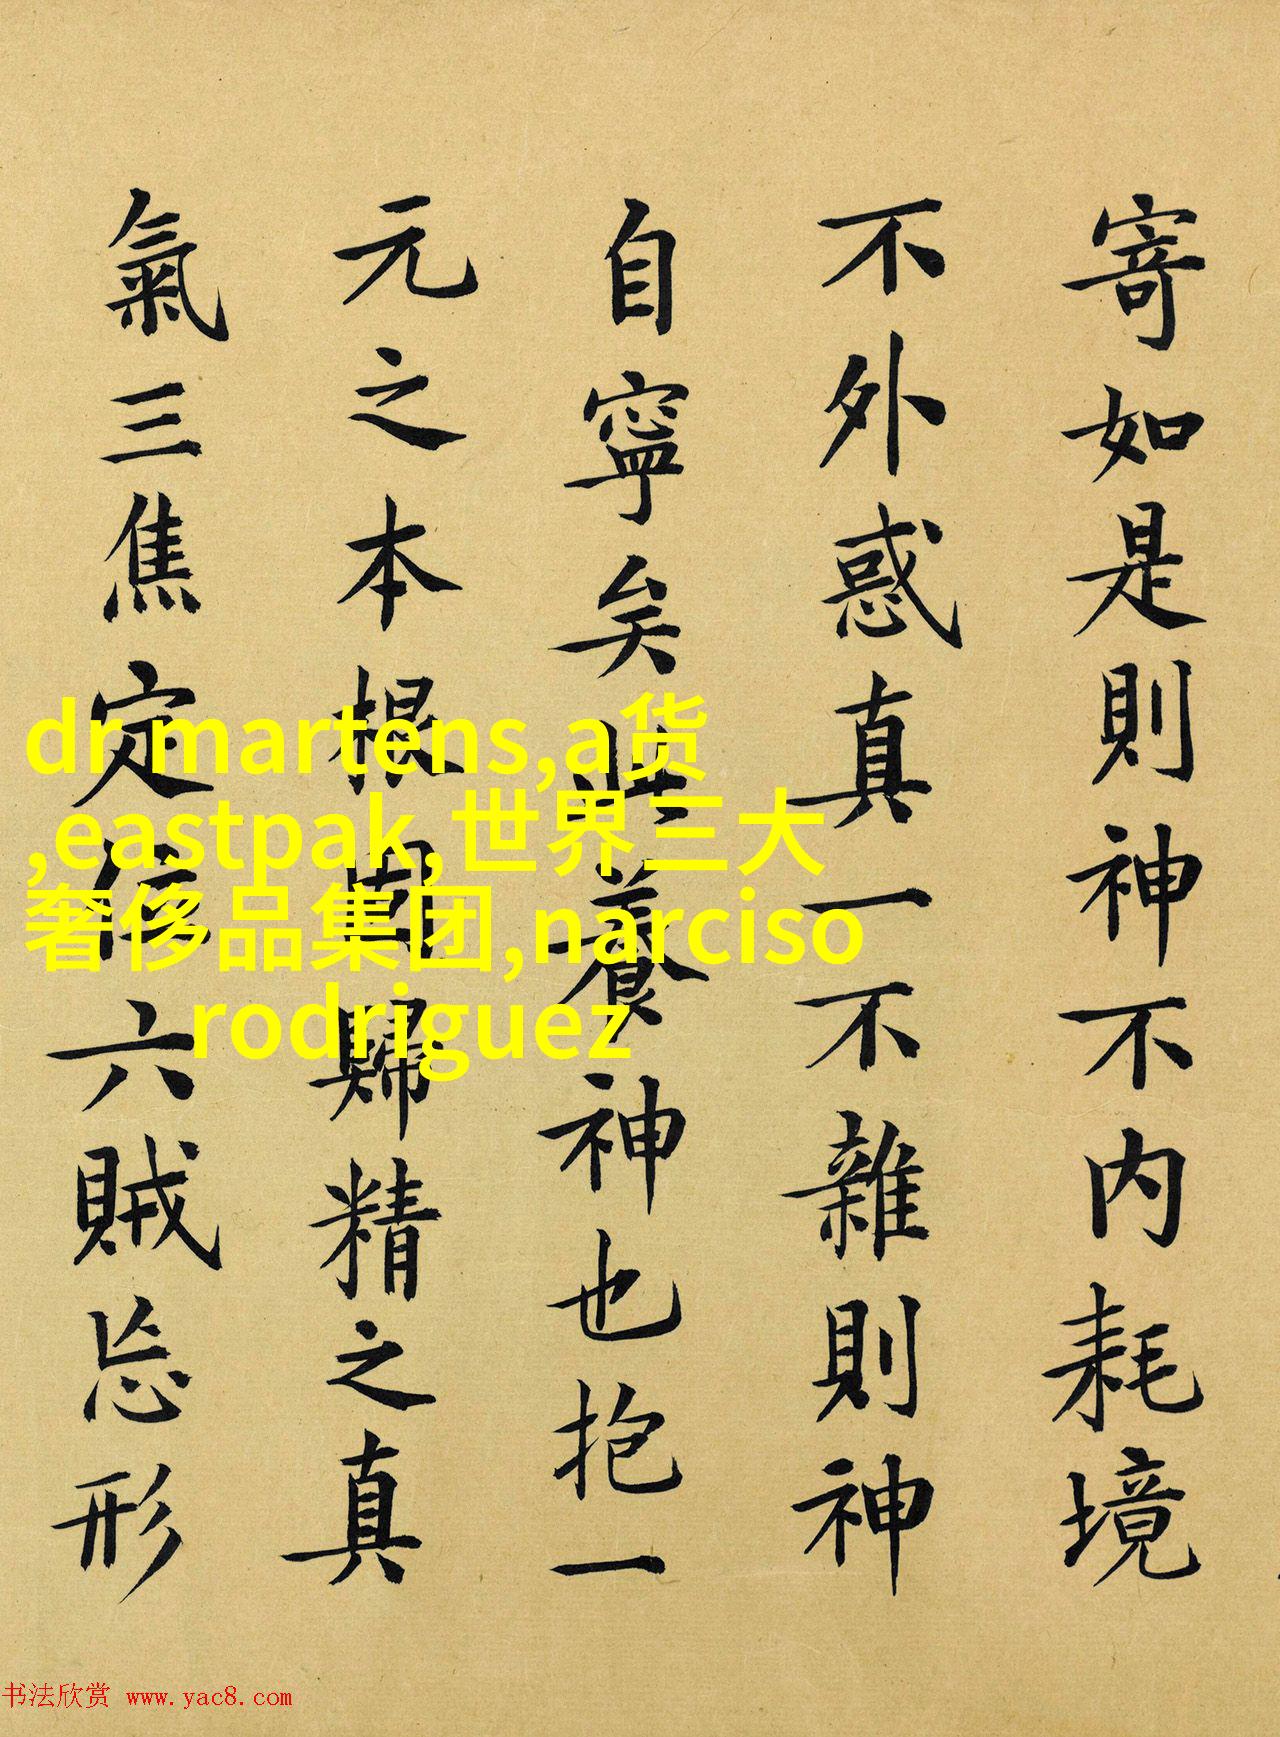 寄如是則神不内耗境
不外惑真一不雜則神
自寧矣此養神也抱一
元之本根固歸精之真
氣三焦定位六賊忘形
dr.martens,a货
,eastpak,世界三大
奢侈品集团,narciso
rodriguez
书法欣赏 www.yac8.com